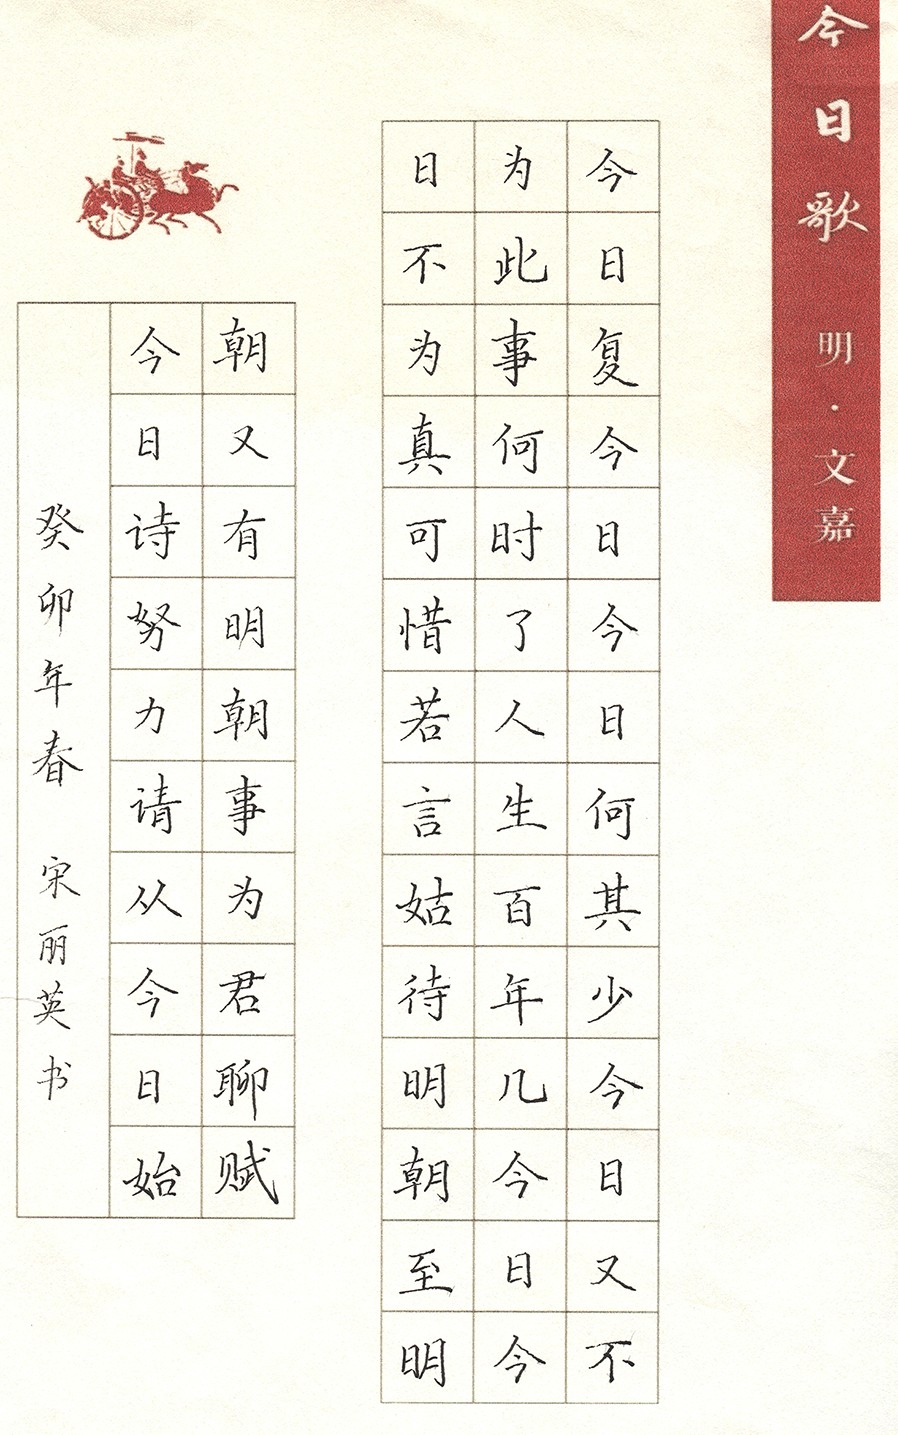 今日歌 明·文嘉
今日复今日今日何其少今日又不
为此事何时了人生百年几今日今
日不为真可惜若言姑待明朝至明
朝又有明朝事为君聊赋
今日诗努力请从今日始
癸卯年春 宋丽英书